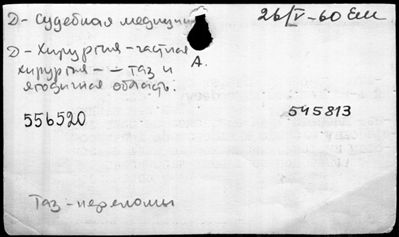 Д - Судебная медицина
26/V-60 Ем
Д - Хирургия - частная
хирургия - - таз и
ягодичная область.
А.
556520
545813
Таз - переломы